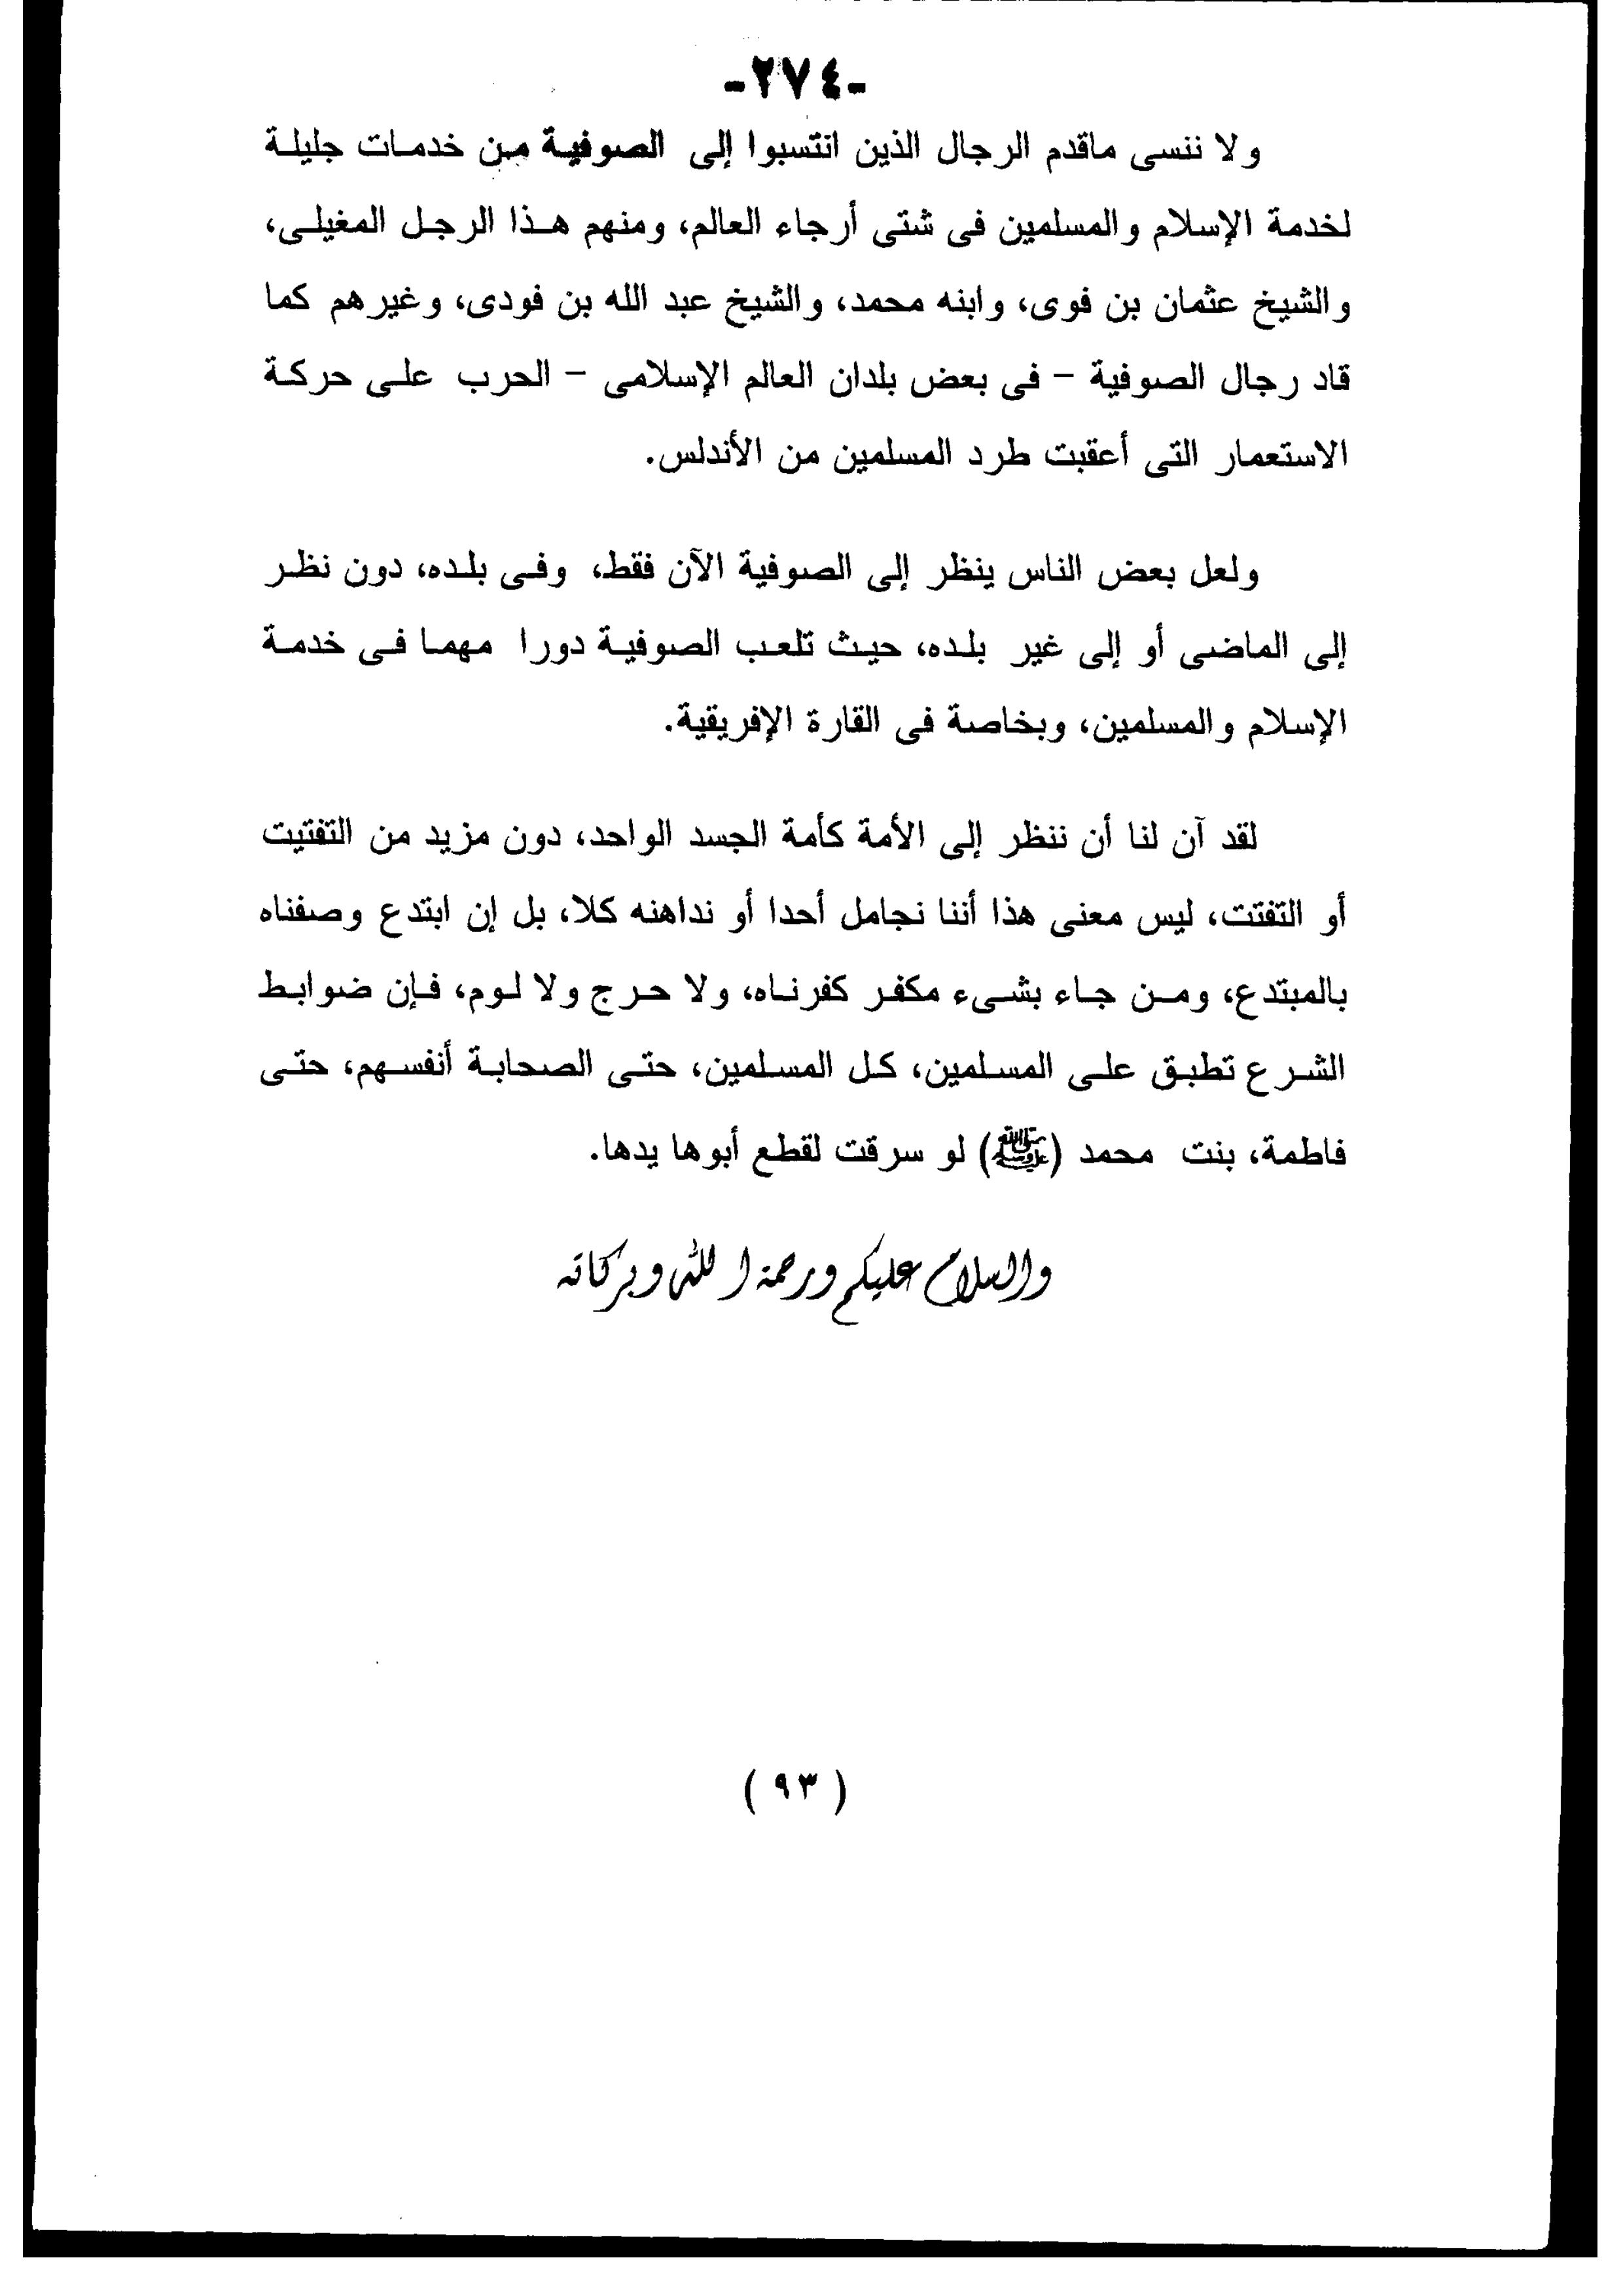 -٢٧٤-
ولا ننسى ماقدم الرجال الذين انتسبوا إلى الصوفية من خدمات جليلة
لخدمة الإسلام والمسلمين فى شتى أرجاء العالم، ومنهم هذا الرجل المغيلى،
والشيخ عثمان بن فوى، وابنه محمد، والشيخ عبد الله بن فودى، وغيرهم كما
قاد رجال الصوفية – فى بعض بلدان العالم الإسلامى – الحرب على حركة
الاستعمار التى أعقبت طرد المسلمين من الأندلس.
ولعل بعض الناس ينظر إلى الصوفية الآن فقط، وفى بلده، دون نظر
إلى الماضى أو إلى غير بلده، حيث تلعب الصوفية دورا مهما فى خدمة
الإسلام والمسلمين، وبخاصة فى القارة الإفريقية.
لقد آن لنا أن ننظر إلى الأمة كأمة الجسد الواحد، دون مزيد من التفتيت
أو التفتت، ليس معنى هذا أننا نجامل أحدا أو نداهنه كلا، بل إن ابتدع وصفناه
بالمبتدع، ومن جاء بشىء مكفر كفرناه، ولا حرج ولا لوم، فإن ضوابط
الشرع تطبق على المسلمين، كل المسلمين، حتى الصحابة أنفسهم، حتى
فاطمة، بنت محمد (ﷺ) لو سرقت لقطع أبوها يدها.
والسلام عليكم ورحمة الله وبركاته
( ٩٣ )